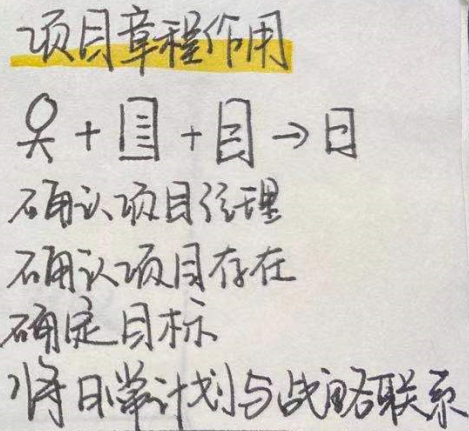 项目章程作用
+ 目 + 目 → 日
确认项目经理
确认项目存在
确定目标
将日常计划与战略联系